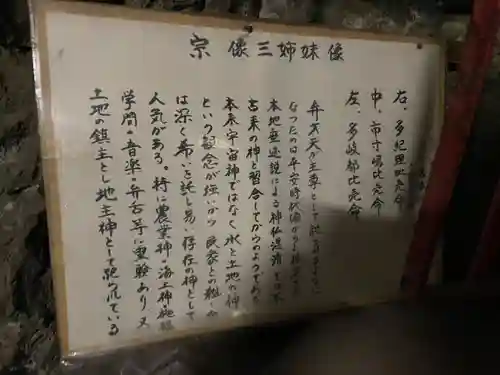 宗像三姉妹像
右、多紀理毘売命
中、市寸嶋比売命
左、多岐都比売命
弁天天が主尊として祀られるように
なったのは平安時代頃からと推定
本地垂迹説による神仏混淆
古来の神と習合してからのようである
本来宇宙神ではなく水と土地の神
という観念が強いから民衆との組
は深く希いを託し易い存在の神として
人気がある。特に農業神・海上神・
学問・音楽・弁舌等に霊験あり又
土地の鎮主とし地主神として祀られている